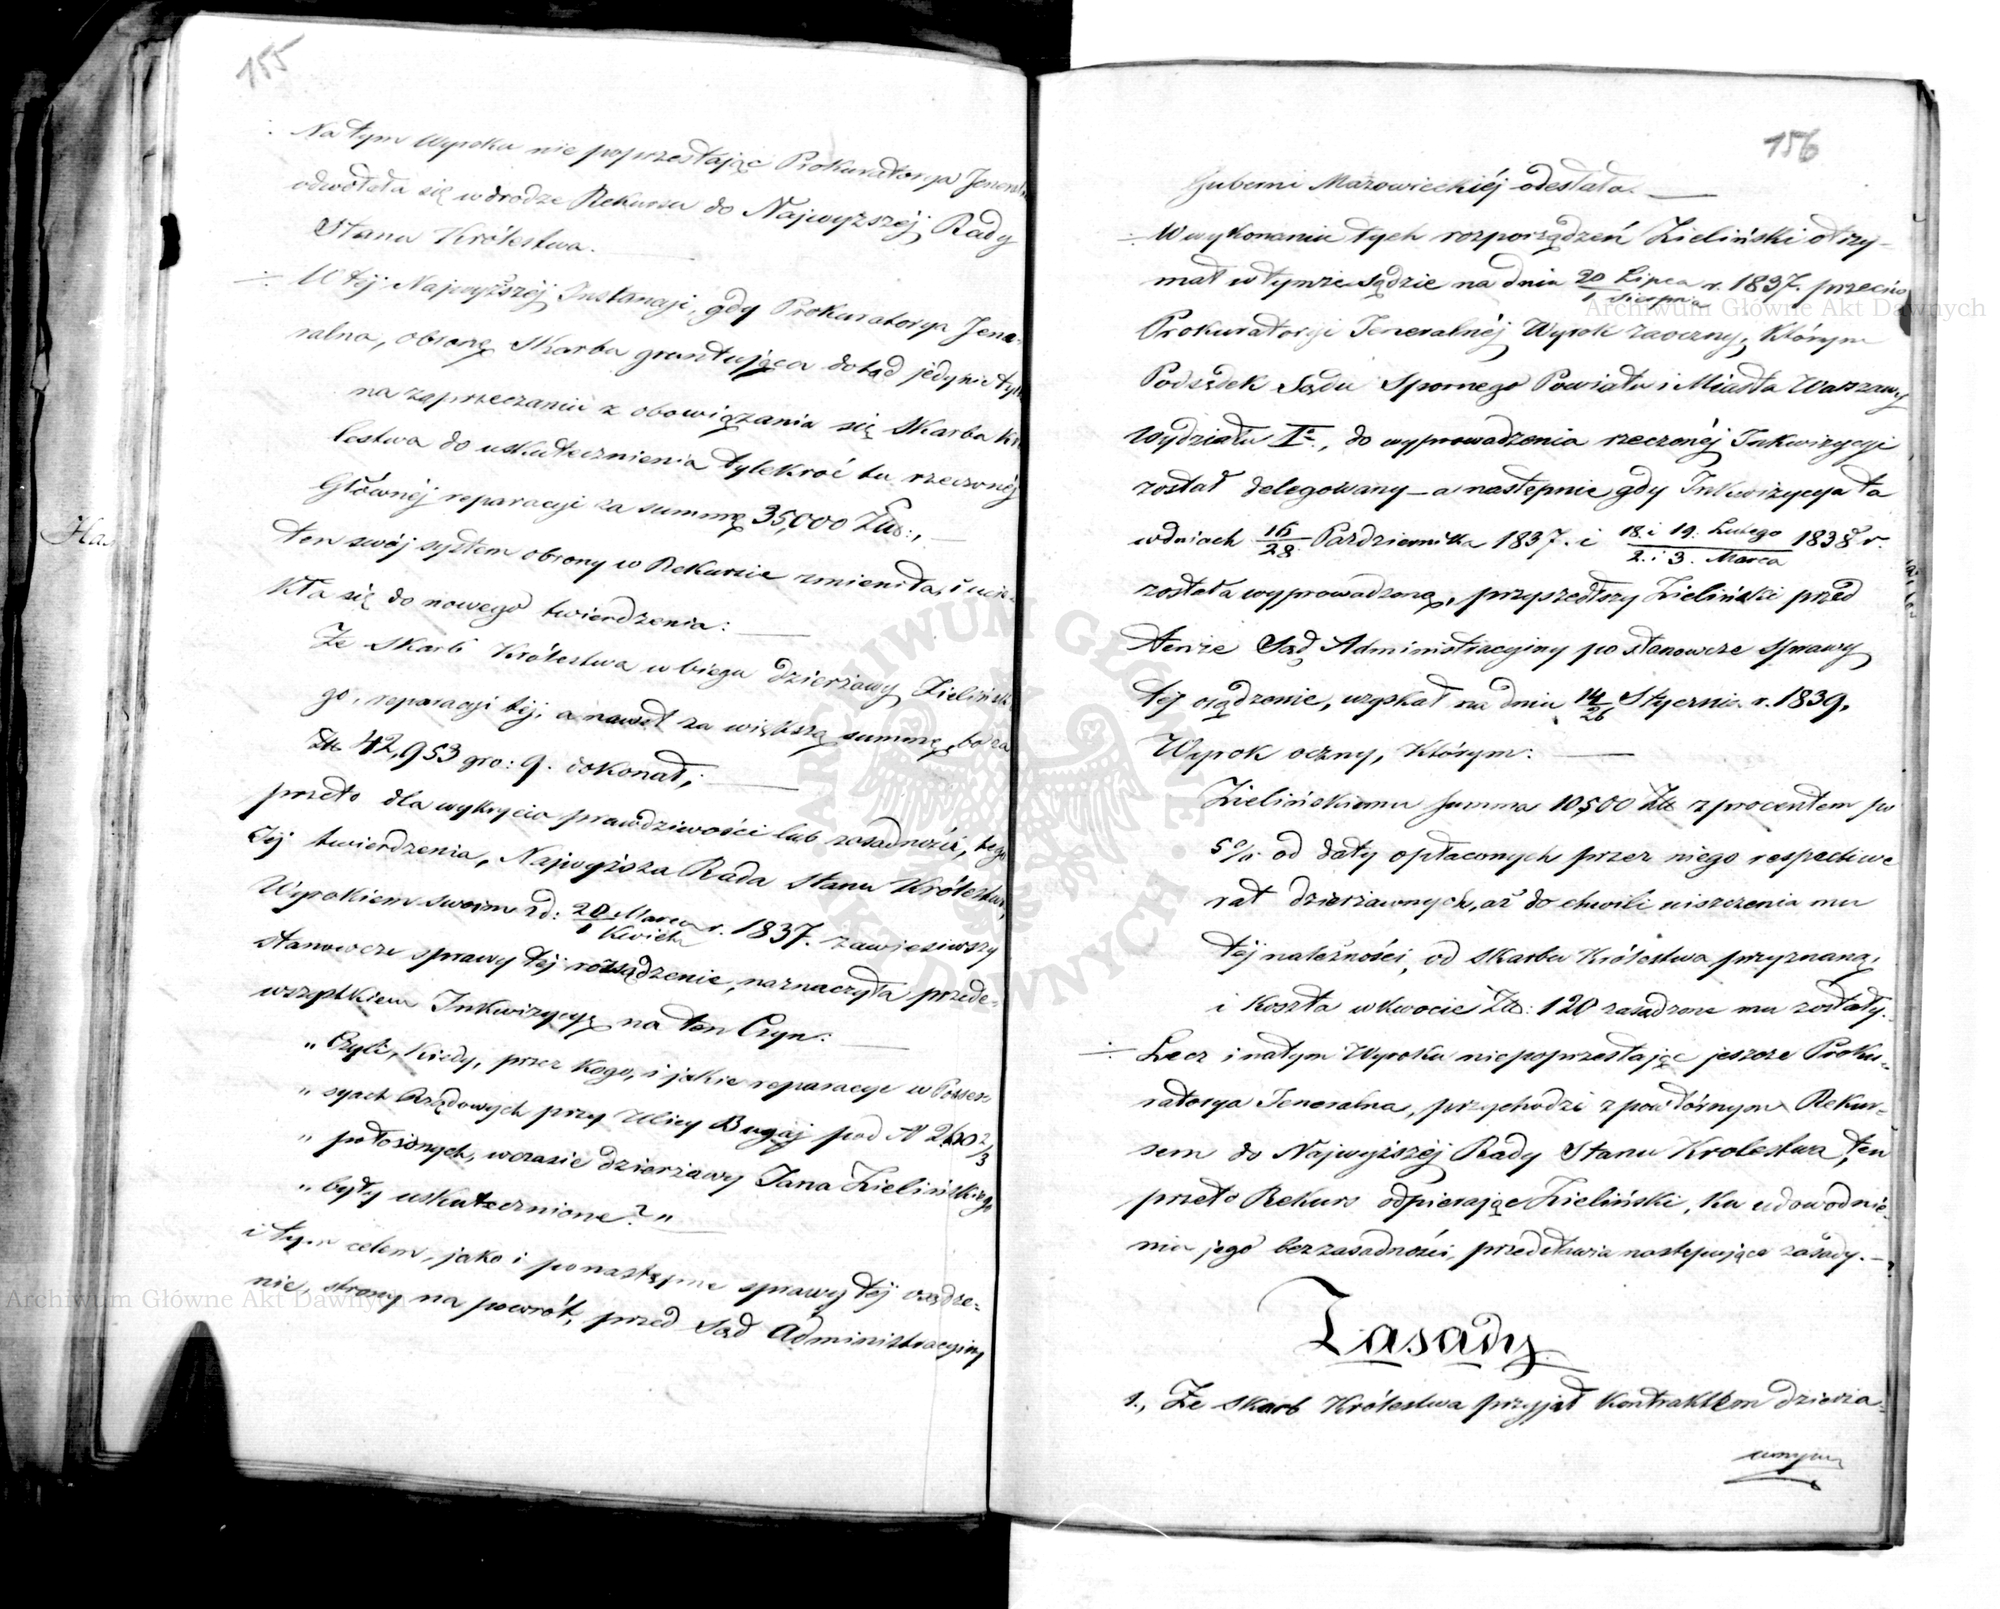 155
Na tym Wyroku nie poprzestając Prokuratorya Jeneralna
odwołała się w drodze Rekursu do Najwyższéj Rady
Stanu Królestwa.
W téj Najwyższéj Instancji, gdy Prokuratorya Jene-
ralna, obronę Skarbu gruntująca dotąd jedynie tylko
na zaprzeczaniu z obowiązania się Skarbu Kró
lestwa do uskutecznienia tylekroć tu rzeczonéj
Głównéj reparacyi za summę 35,000 Złt:,
ten swój system obrony w Rekursie zmieniła, i ucie-
kła się do nowego twierdzenia:
Że Skarb Królestwa w biegu dzierżawy Zielińskie
go, reparacyi téj, a nawet za większą summę, bo za
Złt 42,953 gro: 9. dokonał;
przeto dla wykrycia prawdziwości lub zasadności, tego
Jéj twierdzenia, Najwyższa Rada Stanu Królestwa,
Wyrokiem swoim z d: 20 Marca / 1 Kwietn r. 1837. zawiesiwszy
stanowcze sprawy téj rozsądzenie, naznaczyła przede-
wszystkiem Inkwizycyą na ten Czyn:
„ Czyli, Kiedy, przez Kogo, i jakie reparacye w Posses-
„ syach Rządowych przy Ulicy Bugaj pod N 2602/3
„ położonych, w czasie dzierżawy Jana Zielińskiego
„ były uskutecznione? "
i tym celem, jako i ponastępne sprawy téj osądze-
nie, strony na powrót, przed Sąd Administracyiny
156
Gubernii Mazowieckiéj odesłała.
W wykonaniu tych rozporządzeń Zieliński otrzy-
mał w tymże Sądzie na dniu 20 Lipca / 1 Sierpnia r. 1837. przeciw
Prokuratoryi Jeneralnéj Wyrok zaoczny, Którym
Podsędek Sądu Spornego Powiatu i Miasta Warszawy
Wydziału I., do wyprowadzenia rzeczonéj Inkwizycyi
został delegowany – a następnie gdy Inkwizycya ta
w dniach 16/28 Października 1837. i 18. i 19. Lutego / 2. i 3. Marca 1838 r.
została wyprowadzoną, przyszedłszy Zieliński przed
tenże Sąd Administracyiny po stanowcze sprawy
téj osądzenie, uzyskał na dniu 14/26 Stycznia r. 1839,
Wyrok oczny, Którym:
Zielińskiemu summa 10500 Złt z procentem po
5 % od daty opłaconych przez niego respective
rat dzierżawnych, aż do chwili uiszczenia mu
téj należności, od Skarbu Królestwa przyznaną,
i Koszta w kwocie Złt: 120 zasądzone mu zostały.
Lecz i na tym Wyroku niepoprzestając jeszcze Proku-
ratorya Jeneralna, przychodzi z powtórnym Rekur-
sem do Najwyższéj Rady Stanu Krolestwa, ten
przeto Rekurs odpierając Zieliński, Ku udowodnie-
niu jego bezzasadności, przedstawia następujące zasady. –
Zasady
1., Że Skarb Królestwa przyjął Kontraktem dzierża-
wnym
Has
Archiwum Główne Akt Dawnych
Archiwum Główne Akt Dawnych
ARCHIWUM GŁÓWNE AKT DAWNYCH